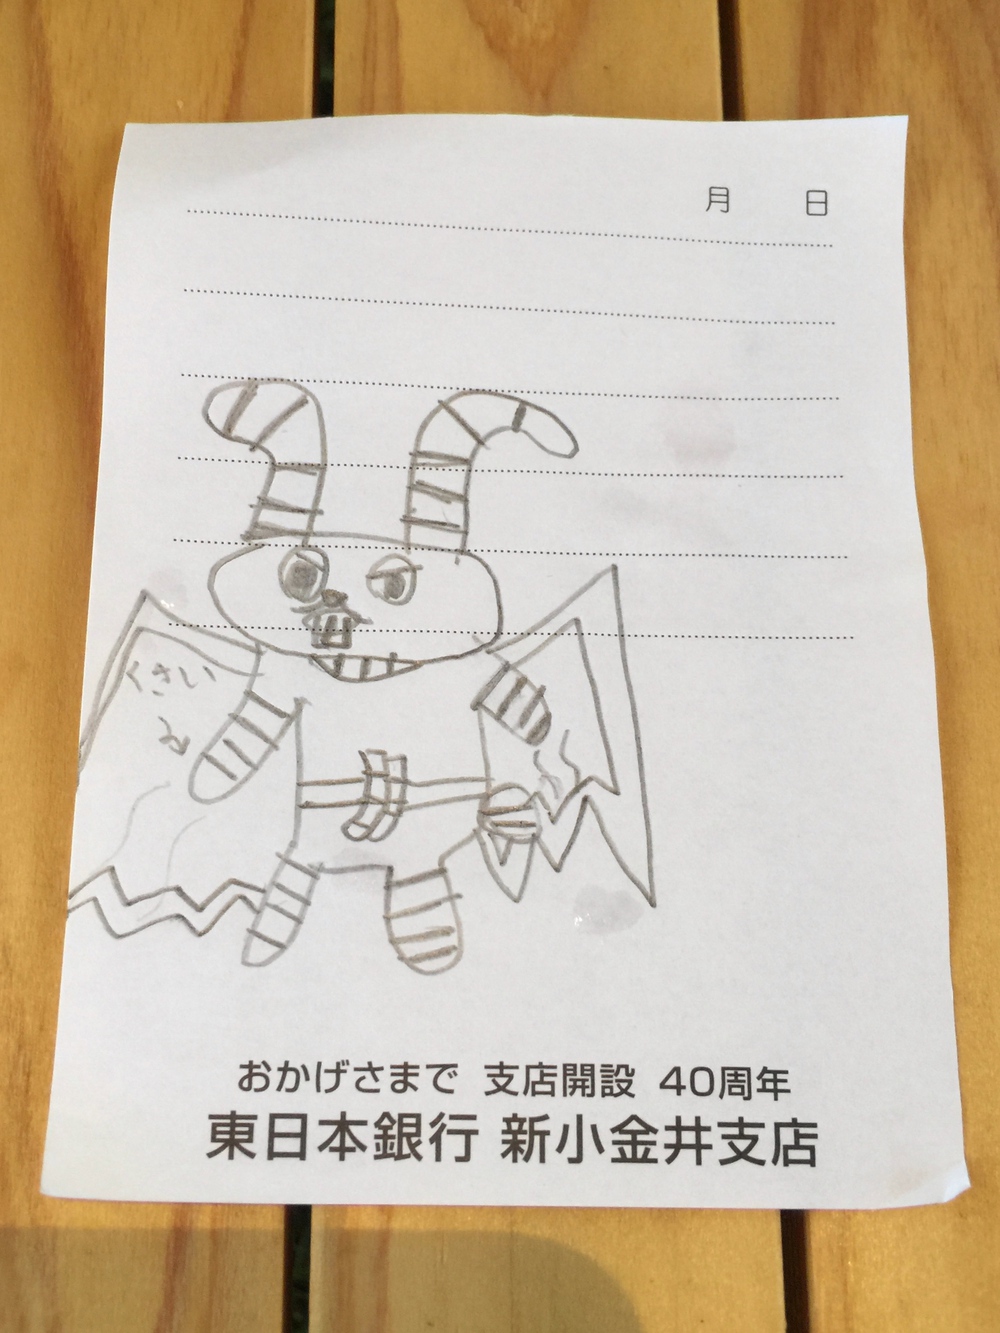 月 日
くさい
おかげさまで 支店開設 40周年
東日本銀行 新小金井支店